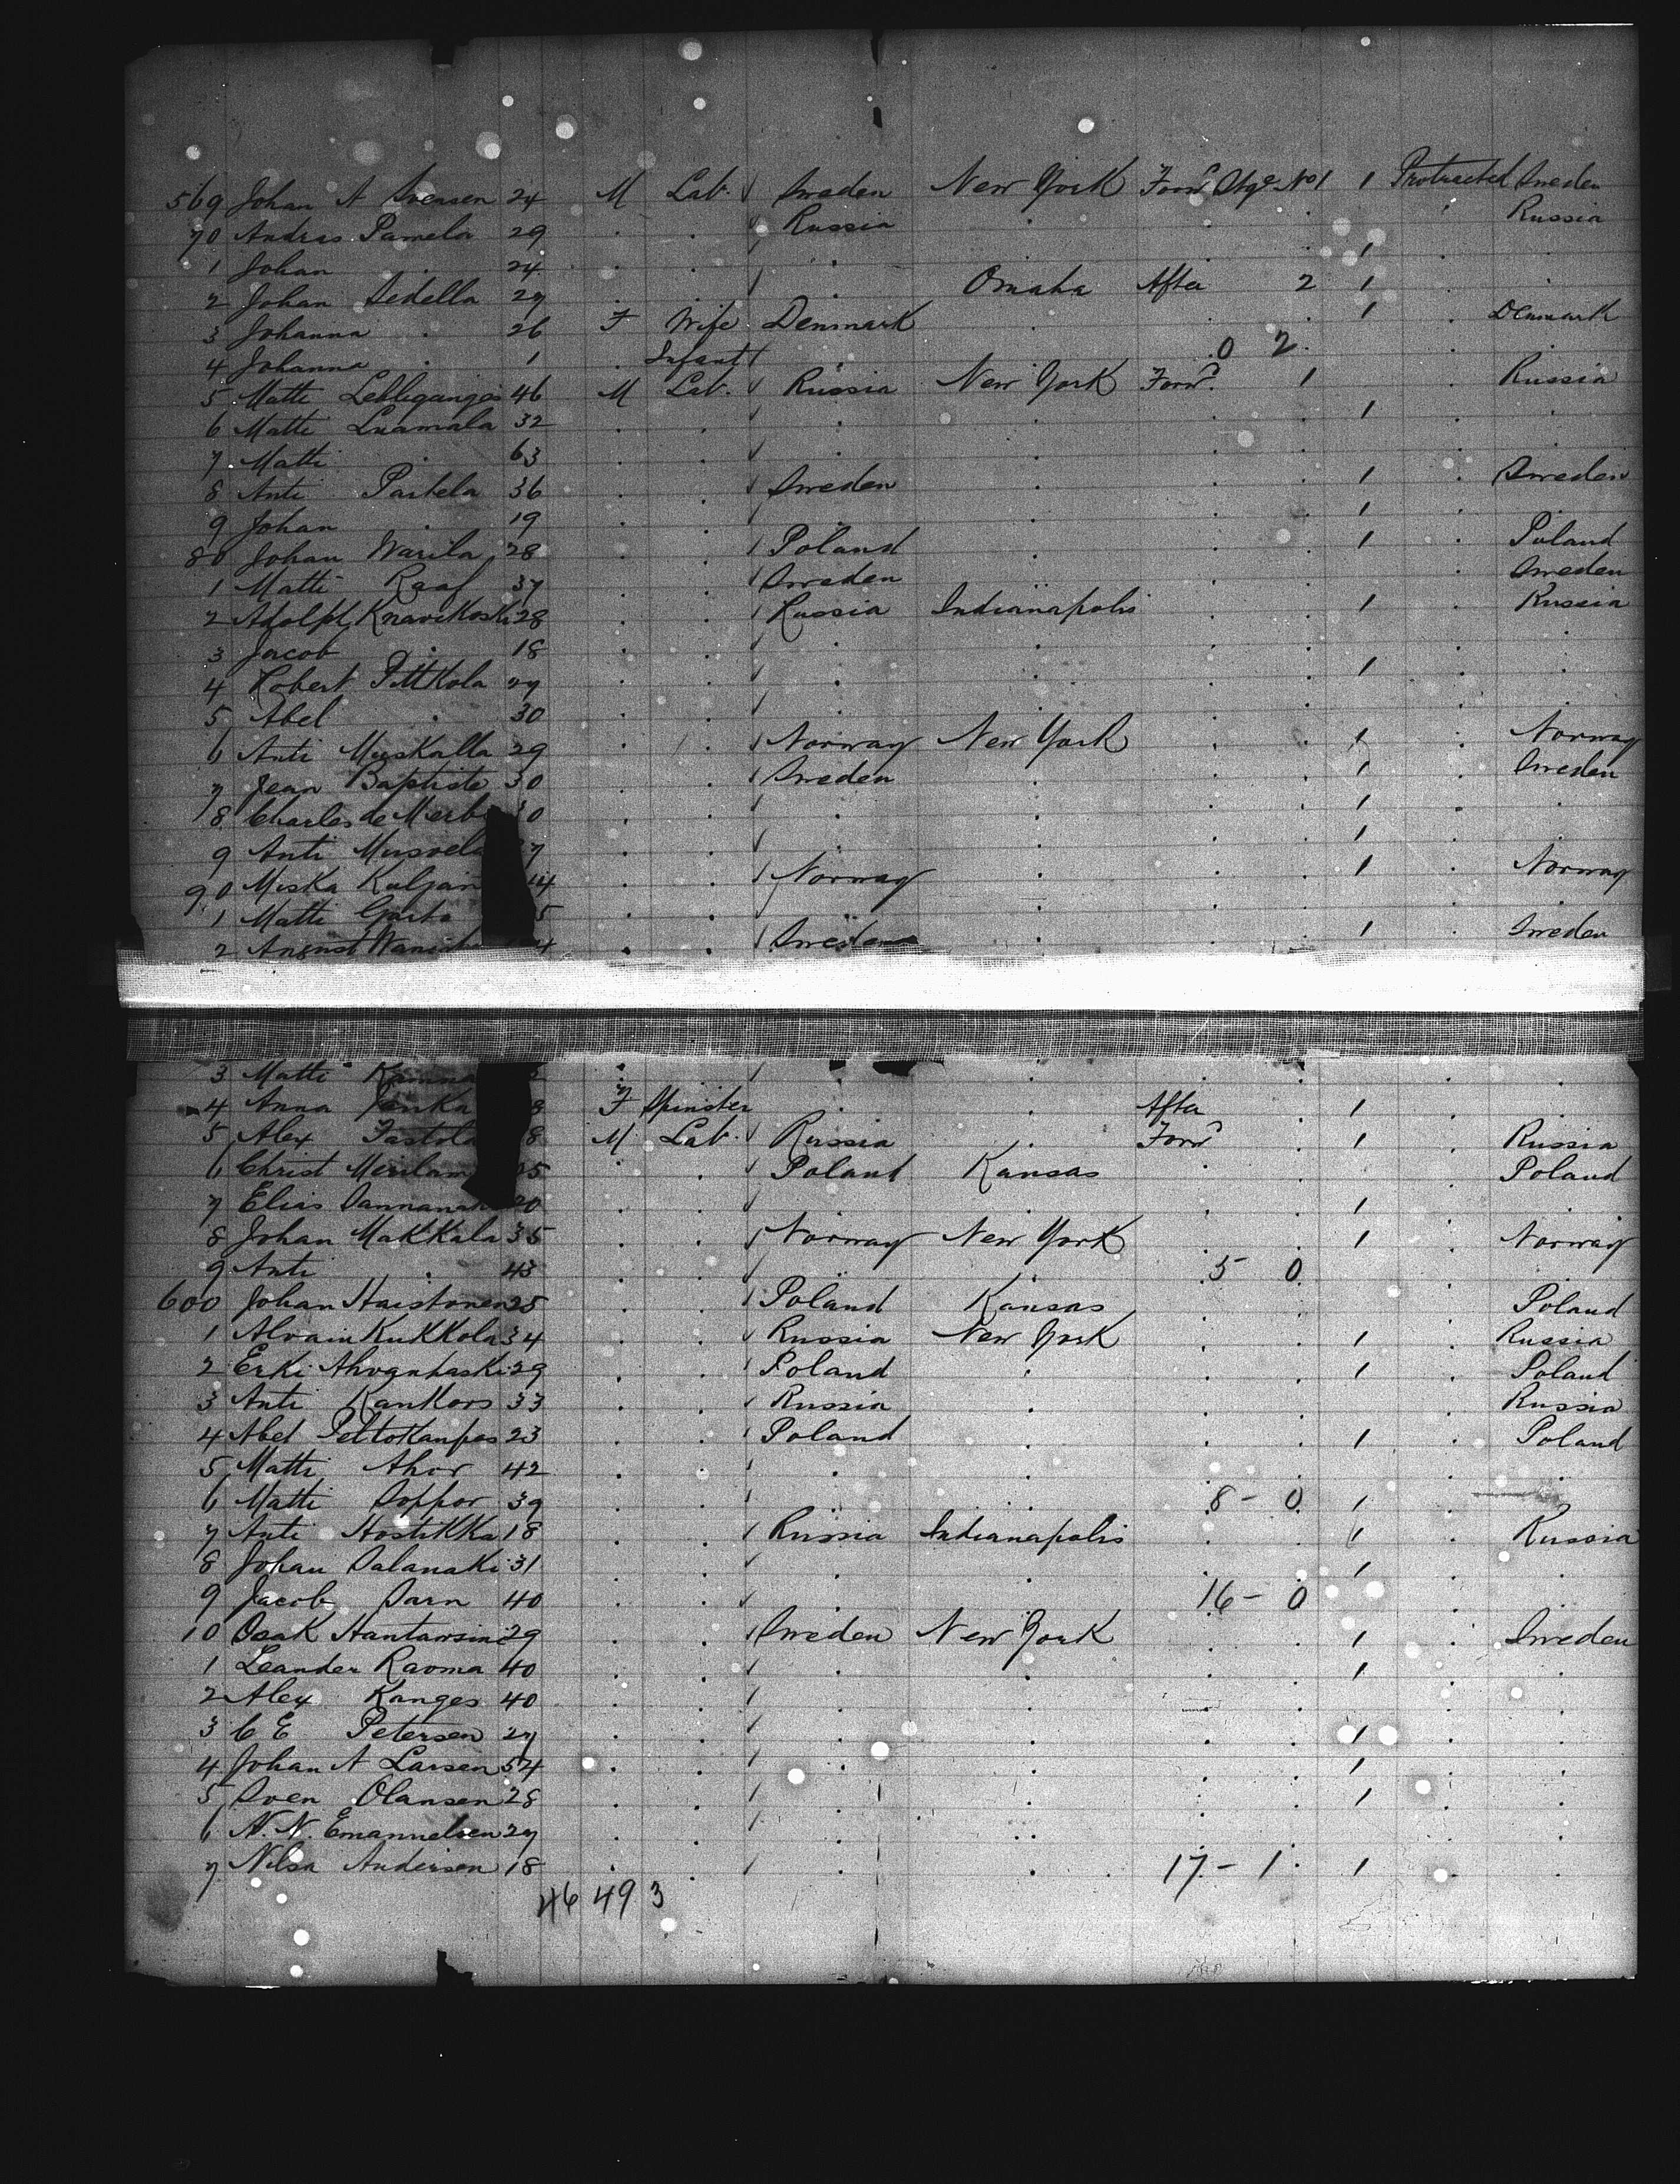 569 Johan A Svensen 24 M Lab. Sweden New York Forwd Stge No 1 1 Protracted Sweden
70 Andras Pamela 29 . . Russia . . . Russia
1 Johan . 24 . . . . . . 1 . .
2 Johan Sedella 27 . . . Omaha After 2 1 . .
3 Johanna . 26 F Wife Denmark . . . 1 . Denmark
4 Johanna . 1 . Infant . . 0 2 . .
5 Matti 46 M Lab. Russia New York Forwd. 1 Russia
6 Matti Luamala 32 . . . . . . 1 . .
7 Matti . 63 . . . . . . . .
8 Anti Partela 36 . . Sweden . . . 1 . Sweden
9 Johan . 19 . . . . . . 1 . .
80 Johan Warila 28 . . Poland . . . 1 . Poland
1 Matti Raaf 37 . . Sweden . . . . Sweden
2 Adolph Knavikoski 28 . . Russia Indianapolis . . 1 . Russia
3 Jacob . 18 . . . . . . . .
4 Robert Pittkola 27 . . . . . . 1 . .
5 Abel . 30 . . . . . . . .
6 Anti Muskalla 29 . . Norway New York . . 1 . Norway
7 Jean Baptiste 30 . . Sweden . . . 1 . Sweden
8 Charles de Mierb 0 . . . . . . 1 . .
9 Anti Musvela 7 . . . . . . 1 . .
90 Miska Kuljain 4 . . Norway . . . 1 . Norway
1 Matti 5 . . . . . . . .
2 August 4 . . Sweden . . . 1 . Sweden
3 Matti Kamna . . . . . . . .
4 Anna Penka 8 F Spinster . . After . 1 . .
5 Alex Tastola 8 M Lab. Russia . Forwd . 1 . Russia
6 Christ Merilam 25 . . Poland Kansas . . . Poland
7 Elias 20 . . . . . . 1 . .
8 Johan Makkala 35 . . Norway New York . . 1 . Norway
9 Anti . 43 . . . . 5 0 . .
600 Johan Haistonen 25 . . Poland Kansas . . . Poland
1 Alvain Kukkola 34 . . Russia New York . . 1 . Russia
2 Erki 29 . . Poland . . . 1 . Poland
3 Anti Kankors 33 . . Russia . . . . Russia
4 Abel Peltokanpas 23 . . Poland . . . 1 . Poland
5 Matti Ahor 42 . . . . . . . .
6 Matti Soppor 39 . . . . 8 - 0 1 .
7 Anti Hostikka 18 . . Russia Indianapolis . . 1 . Russia
8 Johan Salanaki 31 . . . . . . 1 . .
9 Jacob Sarn 40 . . . . 16 - 0 . .
10 Osak Hantawsine 29 . . Sweden New York . . 1 . Sweden
1 Leander Raoma 40 . . . . . . 1 . .
2 Alex Kanges 40 . . . . . . . .
3 C E Petersen 27 . . . . . . 1 . .
4 Johan A Larsen 54 . . . . . . 1 . .
5 Sven Olansen 28 . . . . . . 1 . .
6 N. N. Emannelsen 27 . . . . . . . .
7 Nilsa Andersen 18 . . . . 17 - 1 . 1 . .
46 49 3